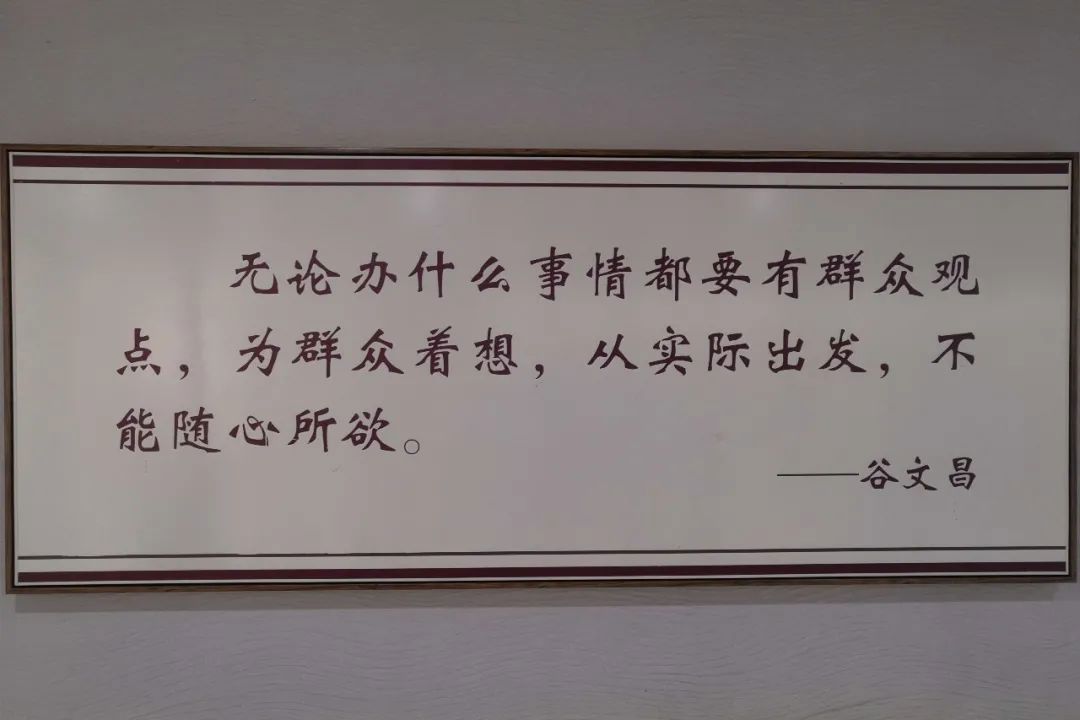 无论办什么事情都要有群众观
点，为群众着想，从实际出发，不
能随心所欲。
——谷文昌